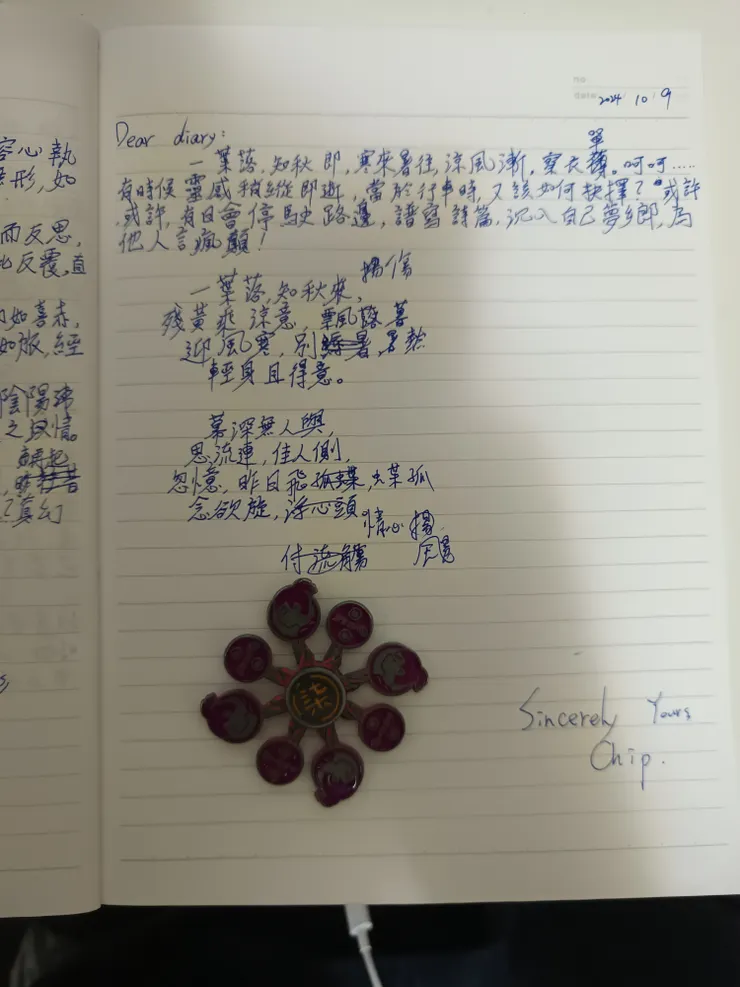 容心執
形，如
而反思，
比反覆，直
如喜赤，
如版，經
陰陽
之
真幻
No
Date 2024 10 9
Dear diary:
單
一葉落，知秋即，寒來暑往，涼風漸，穿衣薄。呵呵……
有時候靈感稍縱即逝，當於行車時，又該如何抉擇？"或許
或許，有日會停駛路邊，譜寫詩篇，沉入自己夢鄉，為
他人言瘋顛！
揚傷
一葉落，知秋來，
殘黃乘涼意，飄落暮
迎風寒，別暑，暑
輕身且得意。
幕深無人與，
思流連，佳人側，
忽憶，昨日飛孤蝶，葉孤
念欲旋，浮心頭，
情心揚
付流觴
Sincerely Yours
Chip.
柒